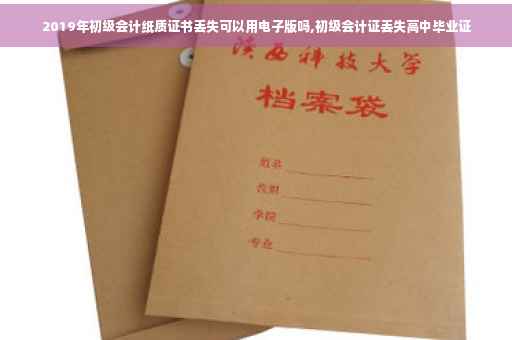 2019年初级会计纸质证书丢失可以用电子版吗,初级会计证丢失高中毕业证
陕西科技大学
档案袋
姓名
学院
专业